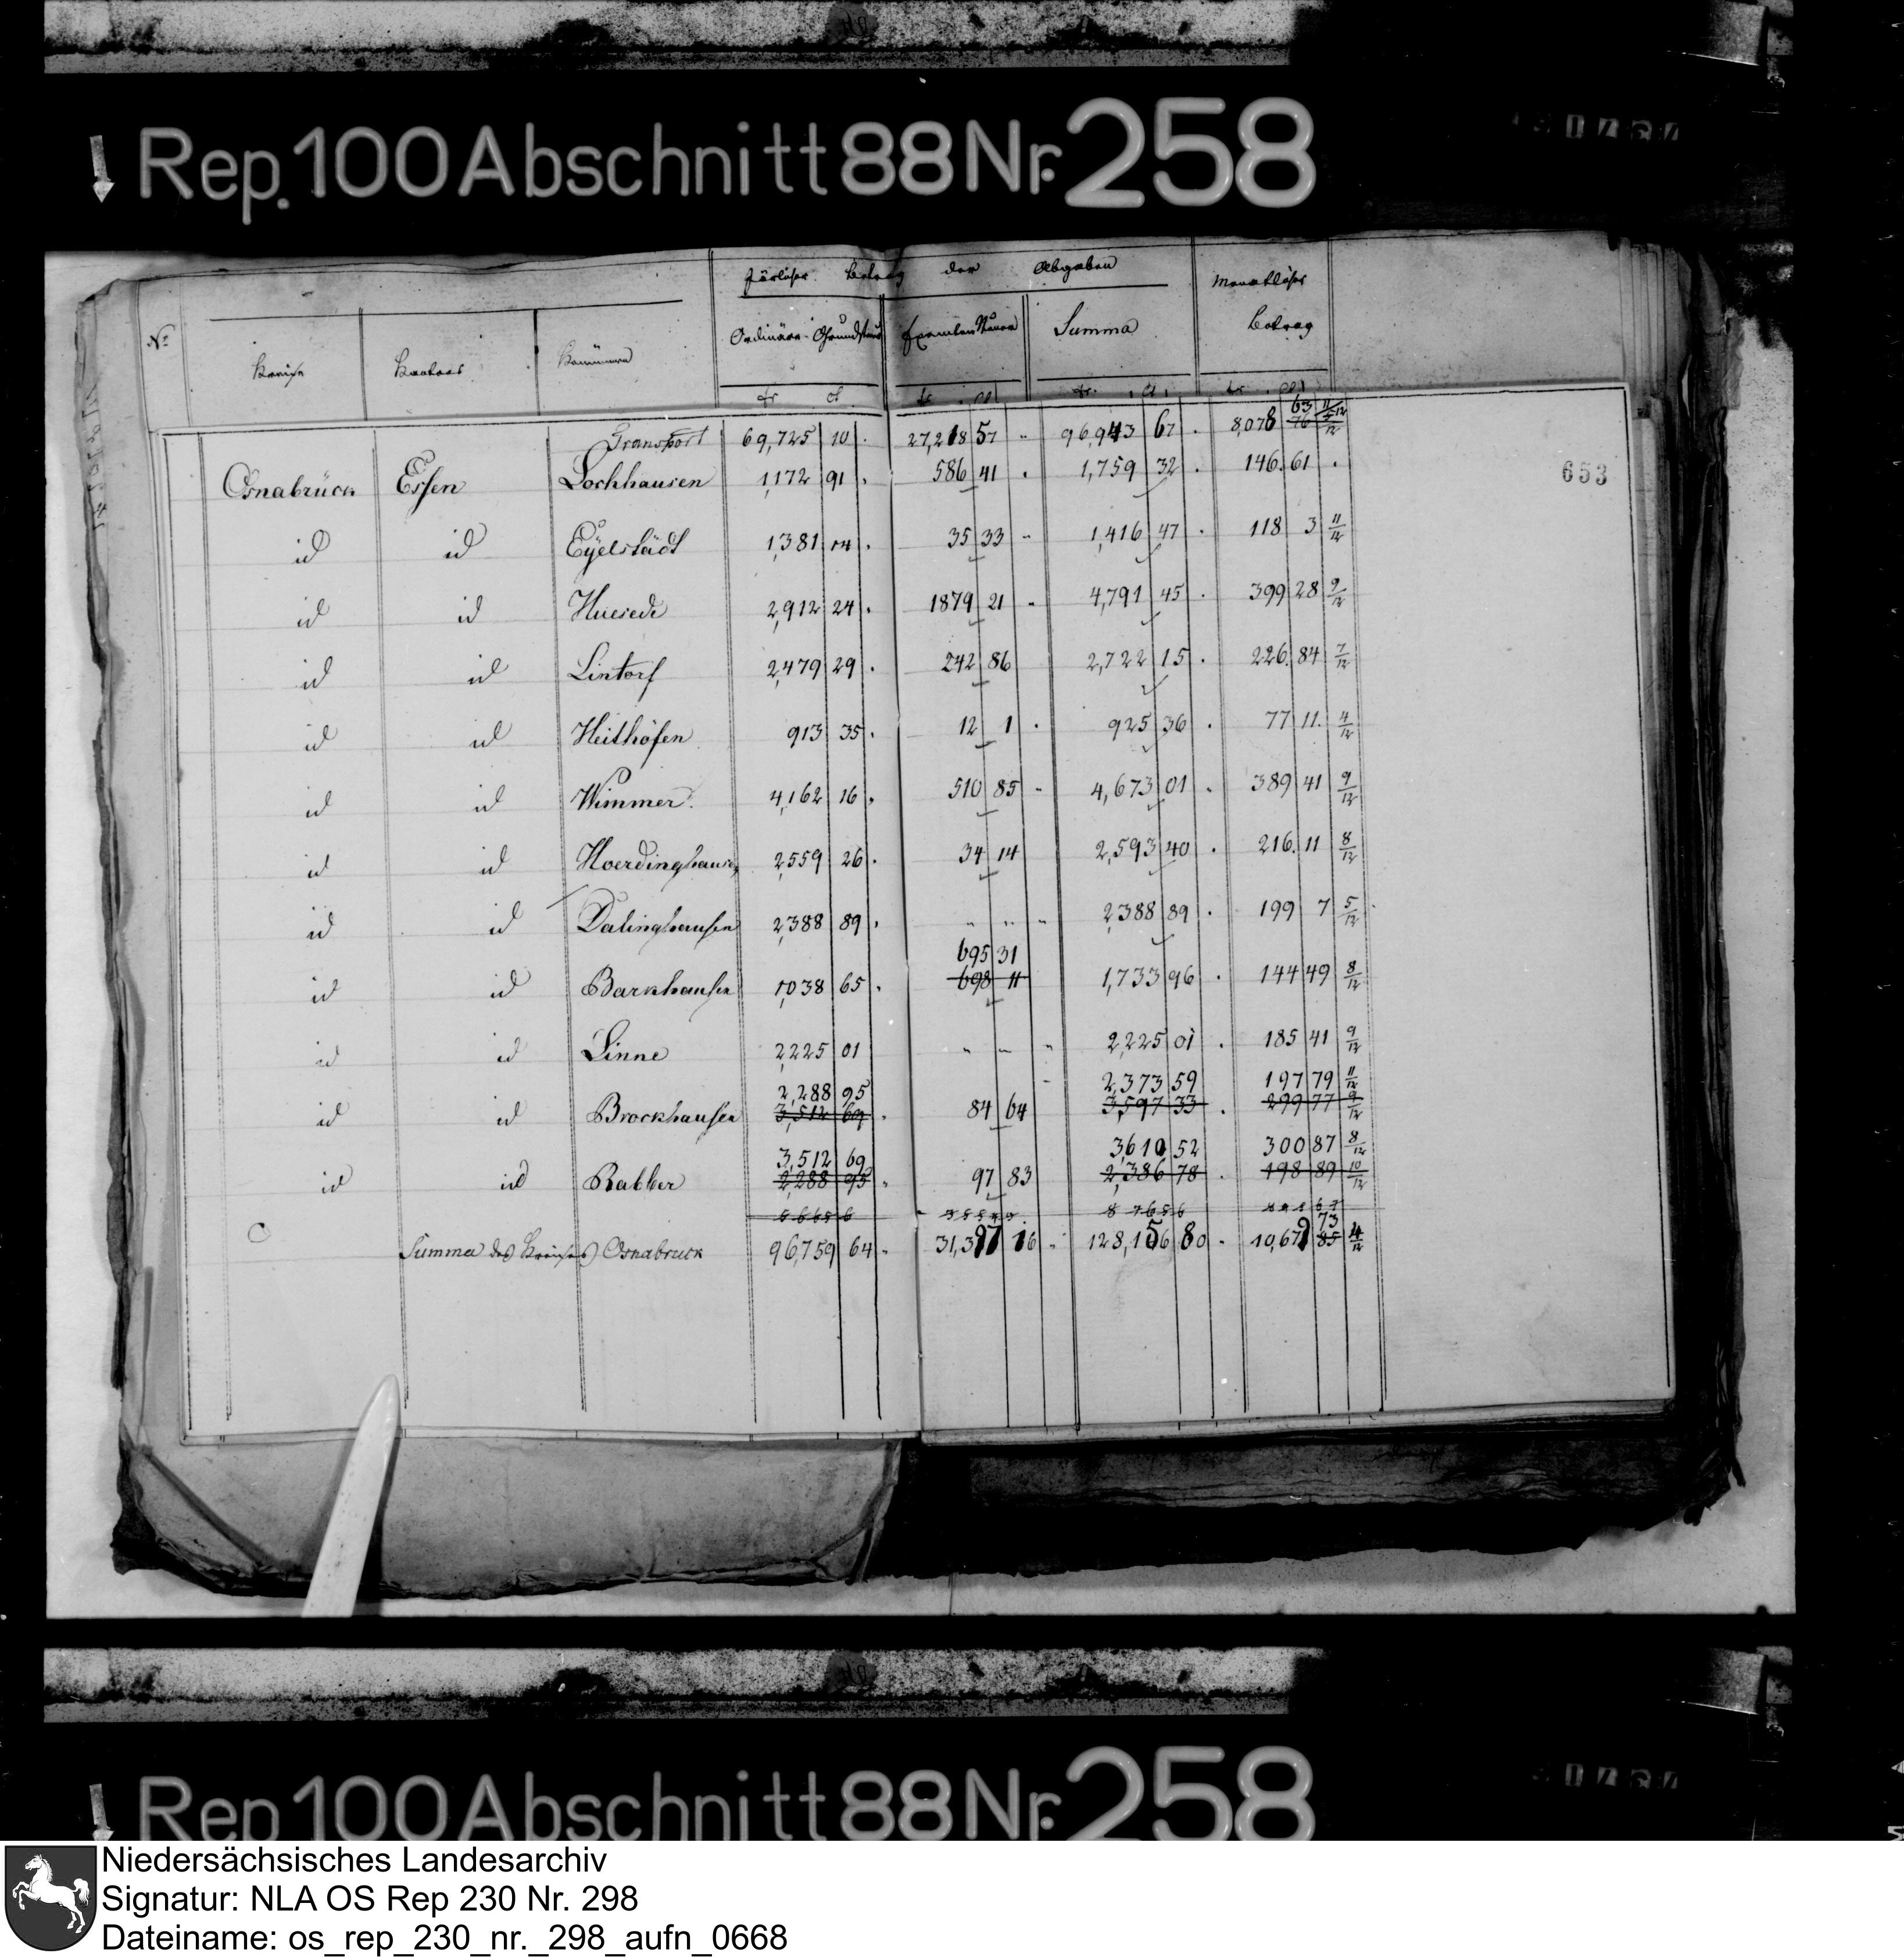 Rep. 100 Abschnitt 88 Nr. 258
Järlicher Betrag der Abgaben
Monatlicher Betrag
No
Kreise
Kantons
Kommunen
Ordinäre Grundsteuer
Exemten Steuer
Summa
fr. ct. fr. ct. fr. ct. fr. ct.
Transport 69,725 10 27,218 57 96,943 67 8,078 63 11/12
Osnabrück Essen Lochhausen 1,172 91 586 41 1,759 32 146 61
653
id id Eyelstädt 1,381 14 35 33 1,416 47 118 3 11/12
id id Huesede 2,912 24 1879 21 4,791 45 399 28 9/12
id id Lintorf 2,479 29 242 86 2,722 15 226 84 7/12
id id Heithöfen 913 35 12 1 925 36 77 11 4/12
id id Wimmer 4,162 16 510 85 4,673 01 389 41 9/12
id id Hoerdinghausen 2,559 26 34 14 2,593 40 216 11 8/12
id id Dalinghausen 2,388 89 " " " 2,388 89 199 7 5/12
695 31
id id Barkhausen 1,038 65 698 11 1,733 96 144 49 8/12
id id Linne 2,225 01 " " " 2,225 01 185 41 9/12
2,288 95 2,373 59 197 79 11/12
id id Brockhausen 3,512 69 84 64 3,597 33 299 77 9/12
3,512 69 3,610 52 300 87 8/12
id id Rabber 2,288 95 97 83 2,386 78 198 89 10/12
73
Summa des Kreises Osnabruck 96,759 64 31,397 16 128,156 80 10,679 85 4/12
Rep. 100 Abschnitt 88 Nr. 258
Niedersächsisches Landesarchiv
Signatur: NLA OS Rep 230 Nr. 298
Dateiname: os_rep_230_nr._298_aufn_0668